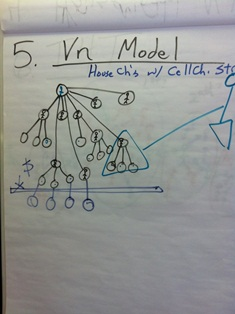 5. Vn Model
House Ch's w/ Cell Ch. St